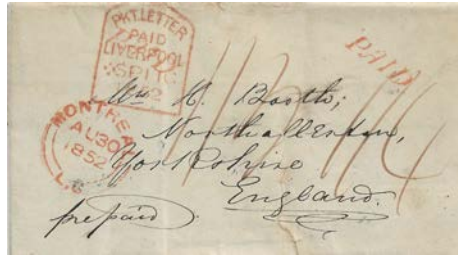 PKT. LETTER
PAID
LIVERPOOL
PAID
MONTRE
AU 30
1852
L.C
Wm
Booth;
Northallerton,
Yorkshire
England.
prepaid